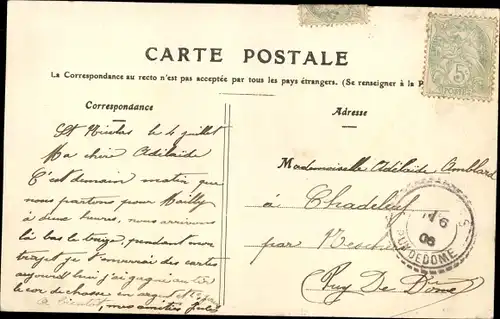 CARTE POSTALE
La Correspondance au recto n'est pas acceptée par tous les pays étrangers. (Se renseigner à la P
Correspondance
St Nicolas le 4 juillet
Ma chère Adélaïde
C'est demain matin que
nous partons pour Mailly
à deux heures, nous arrivons
là bas le treize, pendant mon
trajet je t'enverrai des cartes
aujourd'hui j'ai gagné au tir
le cor de chasse en argent
à bientôt, mes amitiés Jules
Adresse
Mademoiselle Adélaïde Amblard
à Chadeleuf
par Neschers
(Puy De Dôme)
5
POSTES
6
06
PUY DE DOME